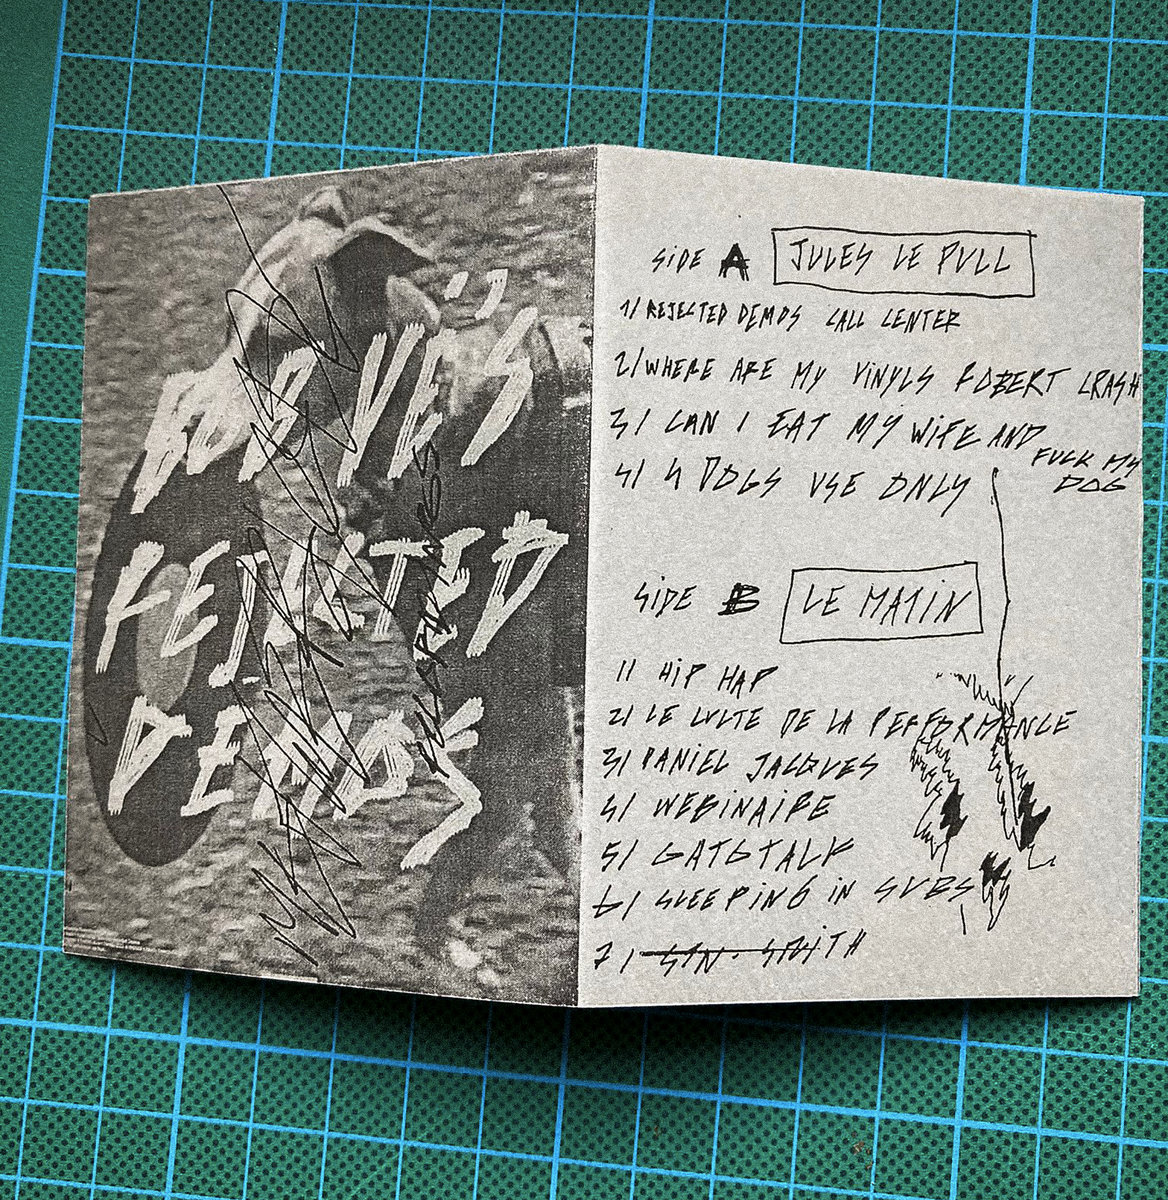 REJECTED
DEMOS
SIDE A JULES LE PULL
1/ REJECTED DEMOS CALL CENTER
2/ WHERE ARE MY VINYLS ROBERT CRASH
3/ CAN I EAT MY WIFE AND FUCK MY DOG
4/ 4 DOGS USE ONLY
SIDE B LE MATIN
1/ HIP HAP
2/ LE CULTE DE LA PERFORMANCE
3/ DANIEL JACQUES
4/ WEBINAIRE
5/ GATGTALK
6/ SLEEPING IN SUBS
7/ SAN. SMITH